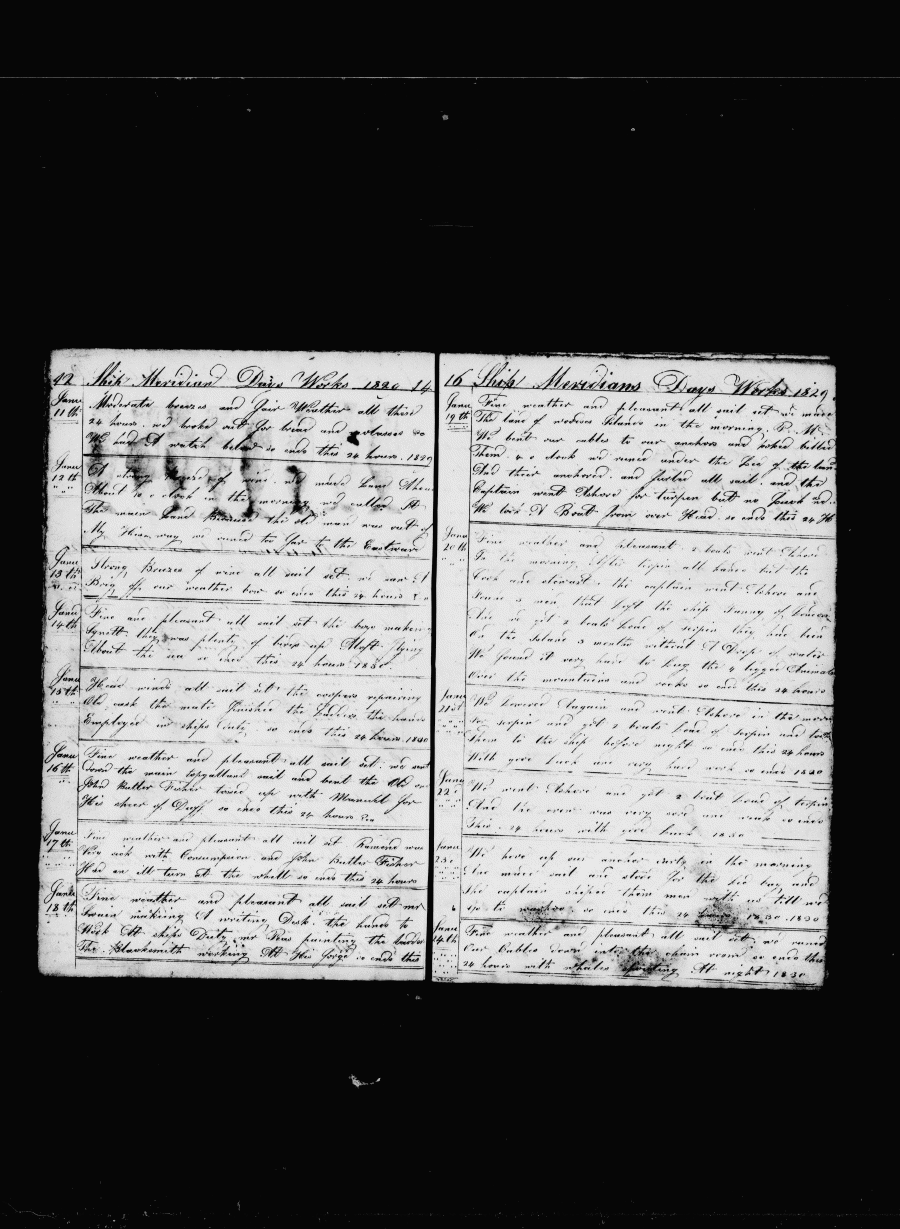 42 Ship Meridian Days Works 1830 14
Janu 11th
Moderate breezes and Fair Weather all these
24 hours. we broke out for bread and molasses so
We had A watch below so ends this 24 hours. 1829
Janu 12th
A strong breeses of wind. we made Land When
About 10 o clock in the morning we called At
The main Land Because the old man was out of
His way we runed too far to the Eastward
Janu 13th
Strong Breezes of wind all sail set. we saw A
Brig off our weather bow so ends this 24 hours
Janu 14th
Fine and pleasant all sail set the
they was plenty of birds up Aloft flying
About the sea so ends this 24 hours 1830
Janu 15th
Head winds all sail set the coopers repairing
Old cask the mate finished the the hands
Employed in ships duty. so ends this 24 hours. 1830
Janu 16th
Fine weather and pleasant all sail set. we sent
down the main topgallant sail and bent the Old one
John Butler Fisher up with for
His of Duff so ends this 24 hours
Janu 17th
Fine weather and pleasant all sail set was
sick with Consumption and John Butler Fisher
Had an ill turn at the wheel so ends this 24 hours
Janu 18th
Fine weather and pleasant all sail set mr
making A writing Desk the hands to
Work At ships Duty mr painting the
The Blacksmith working At His forge so ends this
16 Ship Meridians Days Works 1829
Janu 19th
Fine weather and pleasant all sail set we made
The land of Islands in the morning. P. M.
We bent our cables to our anchors and
Them. 4 o clock we runed under the Lee of the land
And their anchored. and furled all sail. and the
Captain went Ashore for turpin but no
We took A Boat from over Head. so ends this 24 H
Janu 20th
Fine weather and pleasant. 2 boats went Ashore
In the morning After turpin all hands but the
Cook and steward. the captain went Ashore and
Found 3 men that left the ship of London
And we got 2 boats load of turpin they had been
On the Island 3 weeks without A Drop of water
We found it very hard to lug the 4 legged Animals
Over the mountains and rocks so ends this 24 hours
Janu 21st
We lowered Again and went Ashore in the morn
for turpin and got 2 boats load of turpin and
Them to the ship before night so ends this 24 hours
With good luck and very hard work so ends 1830
Janu 22
We went Ashore and got 2 boat load of turpin
And the crew was very sore and weak so ends
This. 24 hours with good luck 1830
Janu 23
We hove up our anchor early in the morning
And made sail and stood for the big bay and
The captain shiped them men with us till we
so ends this 24 hours 1830. 1830
Janu 24th
Fine weather and pleasant all sail set we runed
Our Cables down into the chain room so ends this
24 hours with whales spouting At night 1830